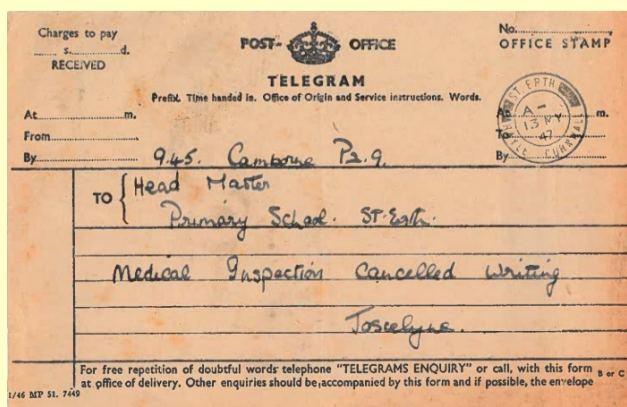 Charges to pay
s. d.
RECEIVED
POST OFFICE
No.
OFFICE STAMP
TELEGRAM
Prefix. Time handed in. Office of Origin and Service instructions. Words.
At m.
From
By
ST. ERTH
A-
13 NY
47
HAYLE CORNWALL
At m.
To
By
9.45. Camborne 9.
TO Head Master
Primary School. St. Erth.
Medical Inspection Cancelled Writing
Joscelyne.
For free repetition of doubtful words telephone "TELEGRAMS ENQUIRY" or call, with this form
at office of delivery. Other enquiries should be accompanied by this form and if possible, the envelope
B or C
1/46 MP 51. 7449